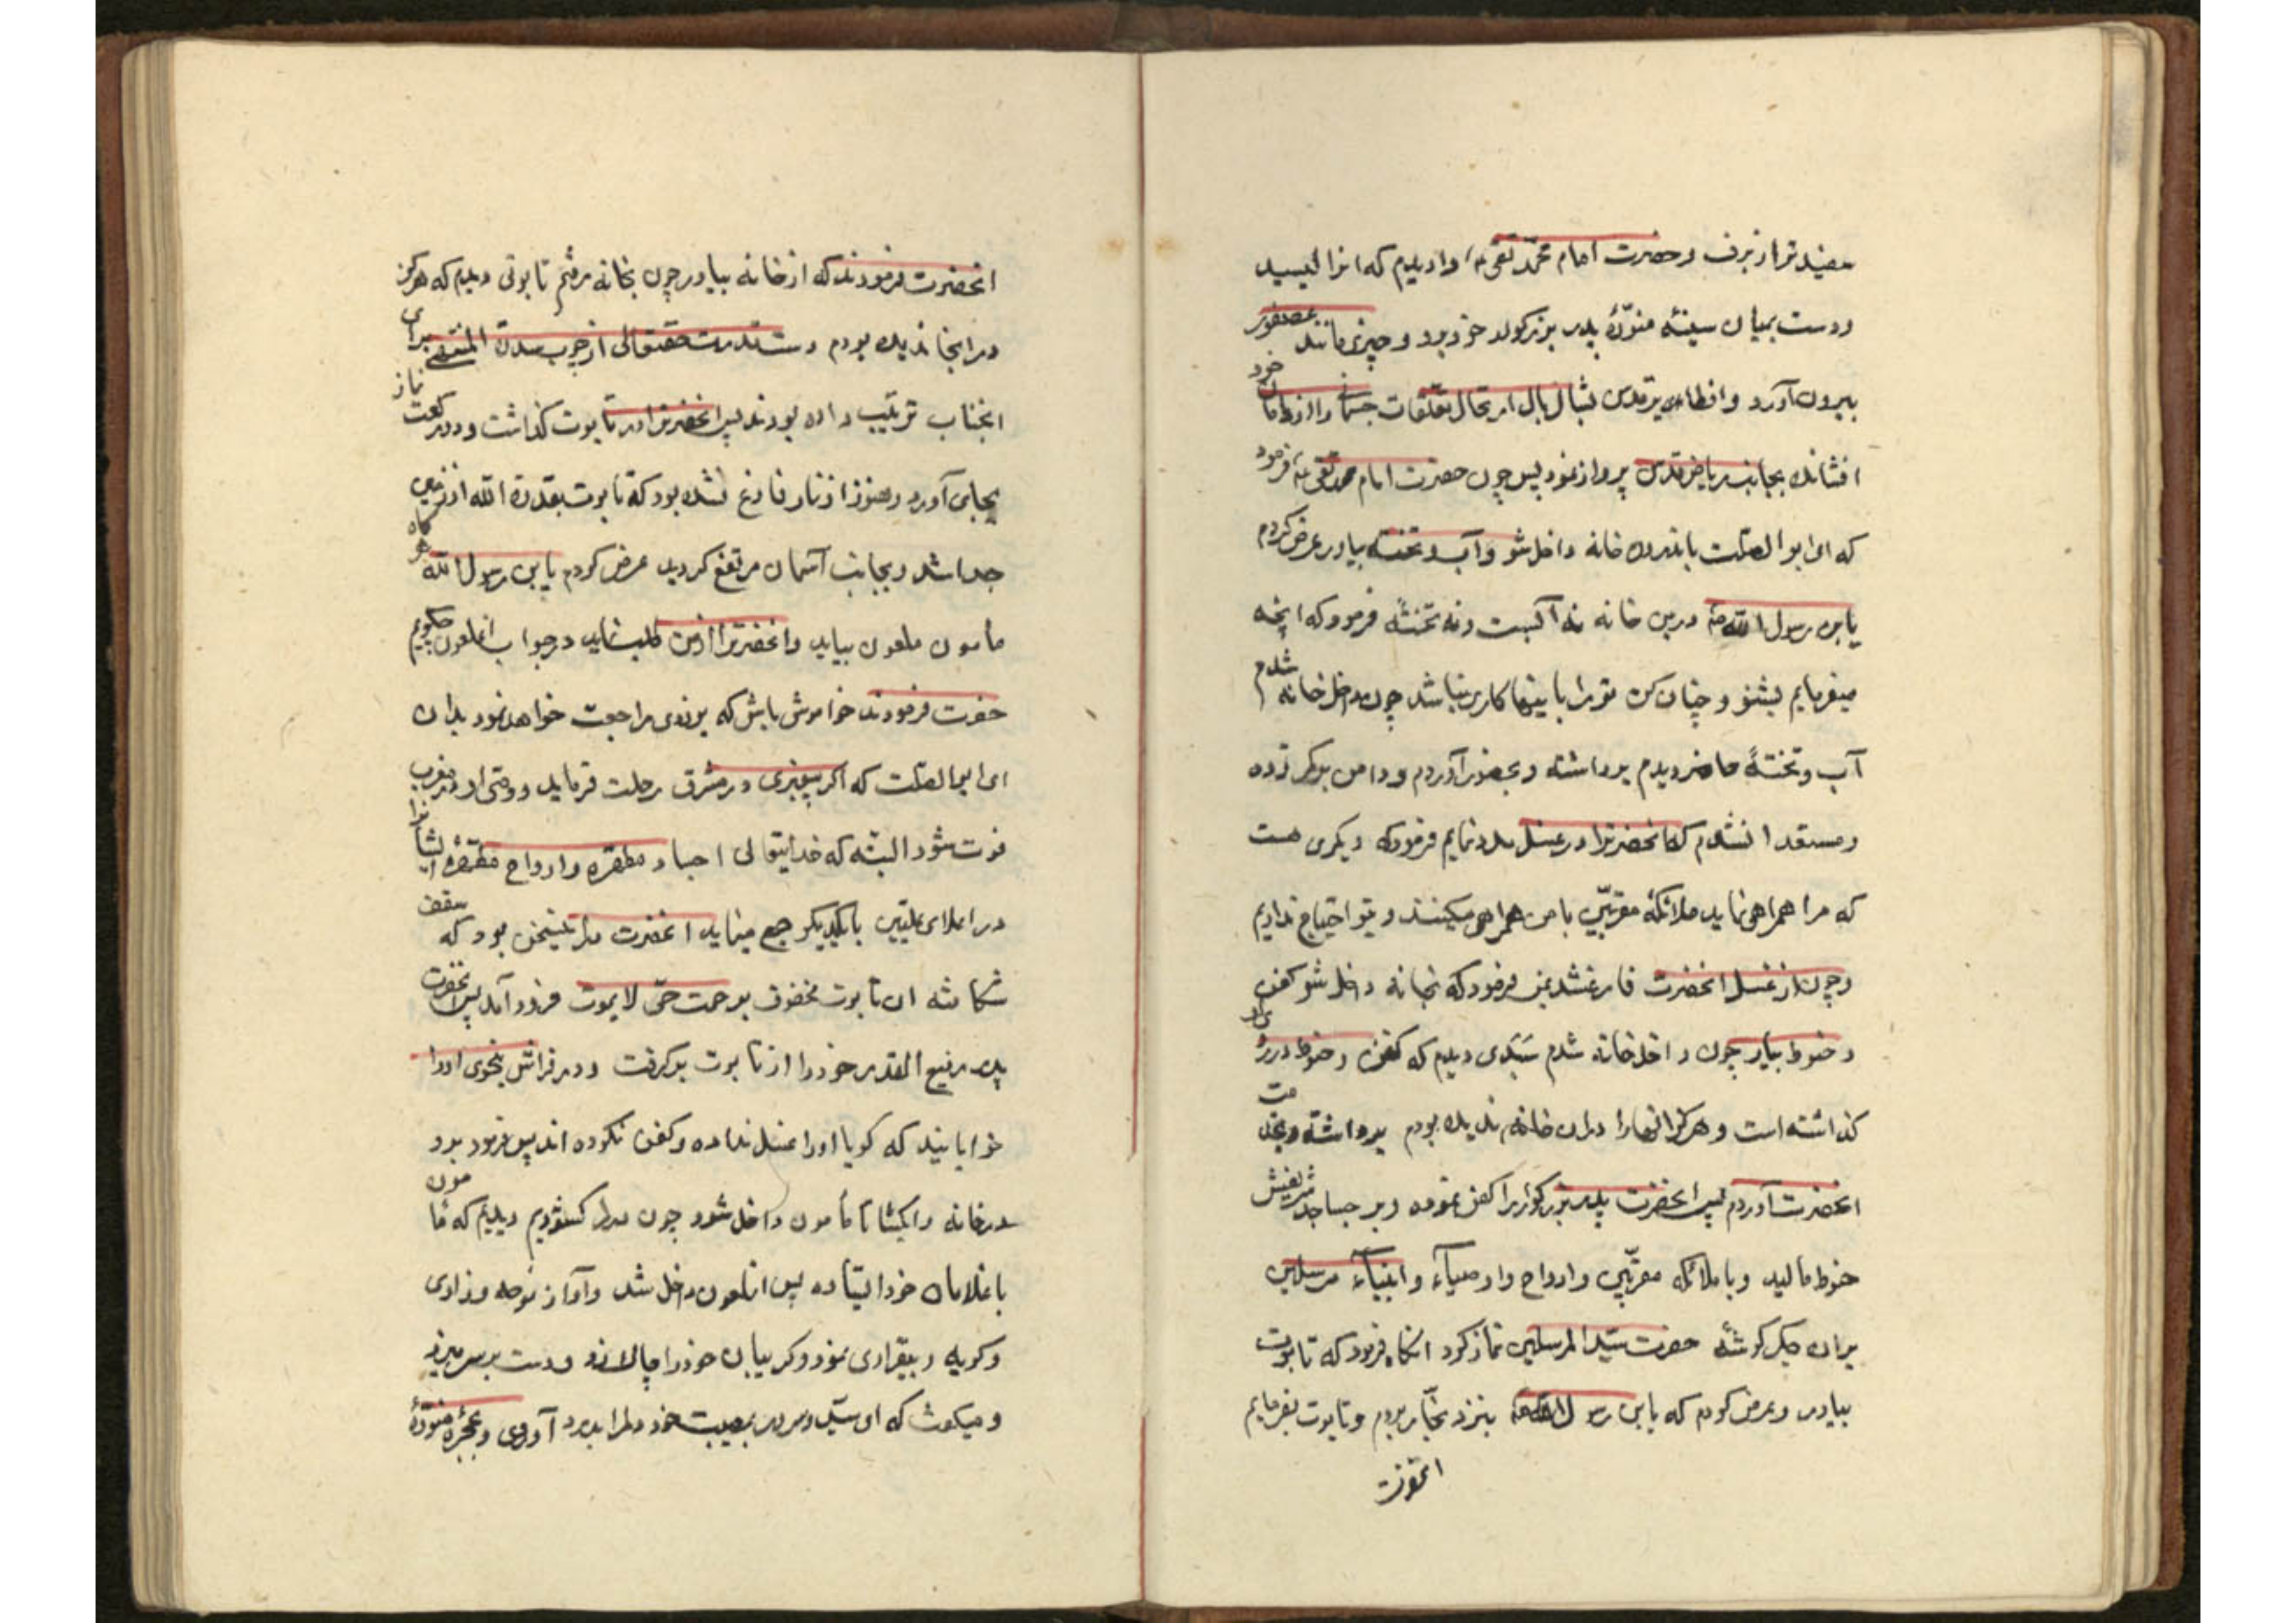 سفیدتر از برف و حضرت امام محمد تقی ع را دیدم که انرا لیسید
و دست بمیان سینهٔ منوّرهٔ پدر بزرکوار خود برد و چیزی مانند عصفور
بیرون آورد و انطایر قدس ببال ارتحال تعلّقات جسمانی را از دامان خود
افشانده بجانب ریاض قدس پرواز نمود پس چون حضرت امام محمد تقی ع فرمود
که ای ابو الصلت باندرون خانه داخل شو و آب و تخته بیاور عرض کردم
یابن رسول الله درین خانه نه آبست و نه تختهٔ فرمود که انچه
میفرمایم بشنو و چنان کن تو را باینها کاری نباشد چون داخل خانه شدم
آب و تختهٔ حاضر دیدم برداشته و بحضور آوردم و دامن بر کمر زده
و مستعد انشدم که انحضرترا در غسل مدد نمایم فرمود که دیکری هست
که مرا همراهی نماید ملائکهٔ مقرّبین با من همراهی میکنند و بتو احتیاج نداریم
و چون از غسل انحضرت فارغ شد بمن فرمود که بخانه داخل شو کفن
و حنوط بیاور چون داخل خانه شدم سبدی دیدم که کفن و حنوط در روی او
کذاشته است و هرکز انها را در ان خانه ندیده بودم برداشته و بخدمت
انحضرت آوردم پس انحضرت پدر بزرکوار را کفن نموده و بر مساجد شریفش
حنوط مالید و با ملائکه مقرّبین و ارواح و اوصیآء و انبیآء مرسلین
بران جکرکوشهٔ حضرت سیّد المرسلین نماز کرد انکاه فرمود که تابوت
بیاور و عرض کردم که یابن رسول الله بنزد نجّار بروم و تابوت بفرمایم
انحضرت
انحضرت فرمودند که از خانه بیاور چون بخانه رفتم تابوتی دیدم که هرکز
در انجا ندیده بودم دست قدرت حقتعالی از چوب سدرة المنتهی برای
انجناب ترتیب داده بودند پس انحضرترا در تابوت کذاشت و دو رکعت نماز
بجای آورد و هنوز از نماز فارغ نشده بود که تابوت بقدرة الله از زمین
جدا شد و بجانب آسمان مرتفع کردید عرض کردم یابن رسول الله هرکاه
مأمون ملعون بیاید و انحضرترا از من طلب نماید در جواب انملعون چکویم
حضرت فرمودند خواموش باش که بزودی مراجعت خواهد نمود بدان
ای ابا الصلت که اکر پیغبری در مشرق رحلت فرماید و وصّی او در مغرب
فوت شود البتّه که خدایتعالی اجساد مطهّره و ارواح مطهّرهٔ ایشانرا
در اعلای علیّین بایکدیکر جمع مینماید انحضرت در اینسخن بود که سقف
شکافته ان تابوت محفوف برحمت حیّ لایموت فرود آمد پس انحضرت
پدر رفیع القدر خود را از تابوت برکرفت و در فراش بنحوی او را
خوابانید که کویا او را غسل نداده و کفن نکرده اند پس فرمود برو
درخانه را بکشا تا مأمون داخل شود چون در را کشودیم دیدیم که مأمون
با غلامان خود ایستاده پس انملعون داخل شد و آواز نوحه و زاری
و کریه و بیقراری نمود و کریبان خود را چاک زد و دست بر سر میزد
و میکفت که ای سیّد و سرور بمصیبت خود دلمرا بدرد آوردی و بحجرهٔ منوّرهٔ